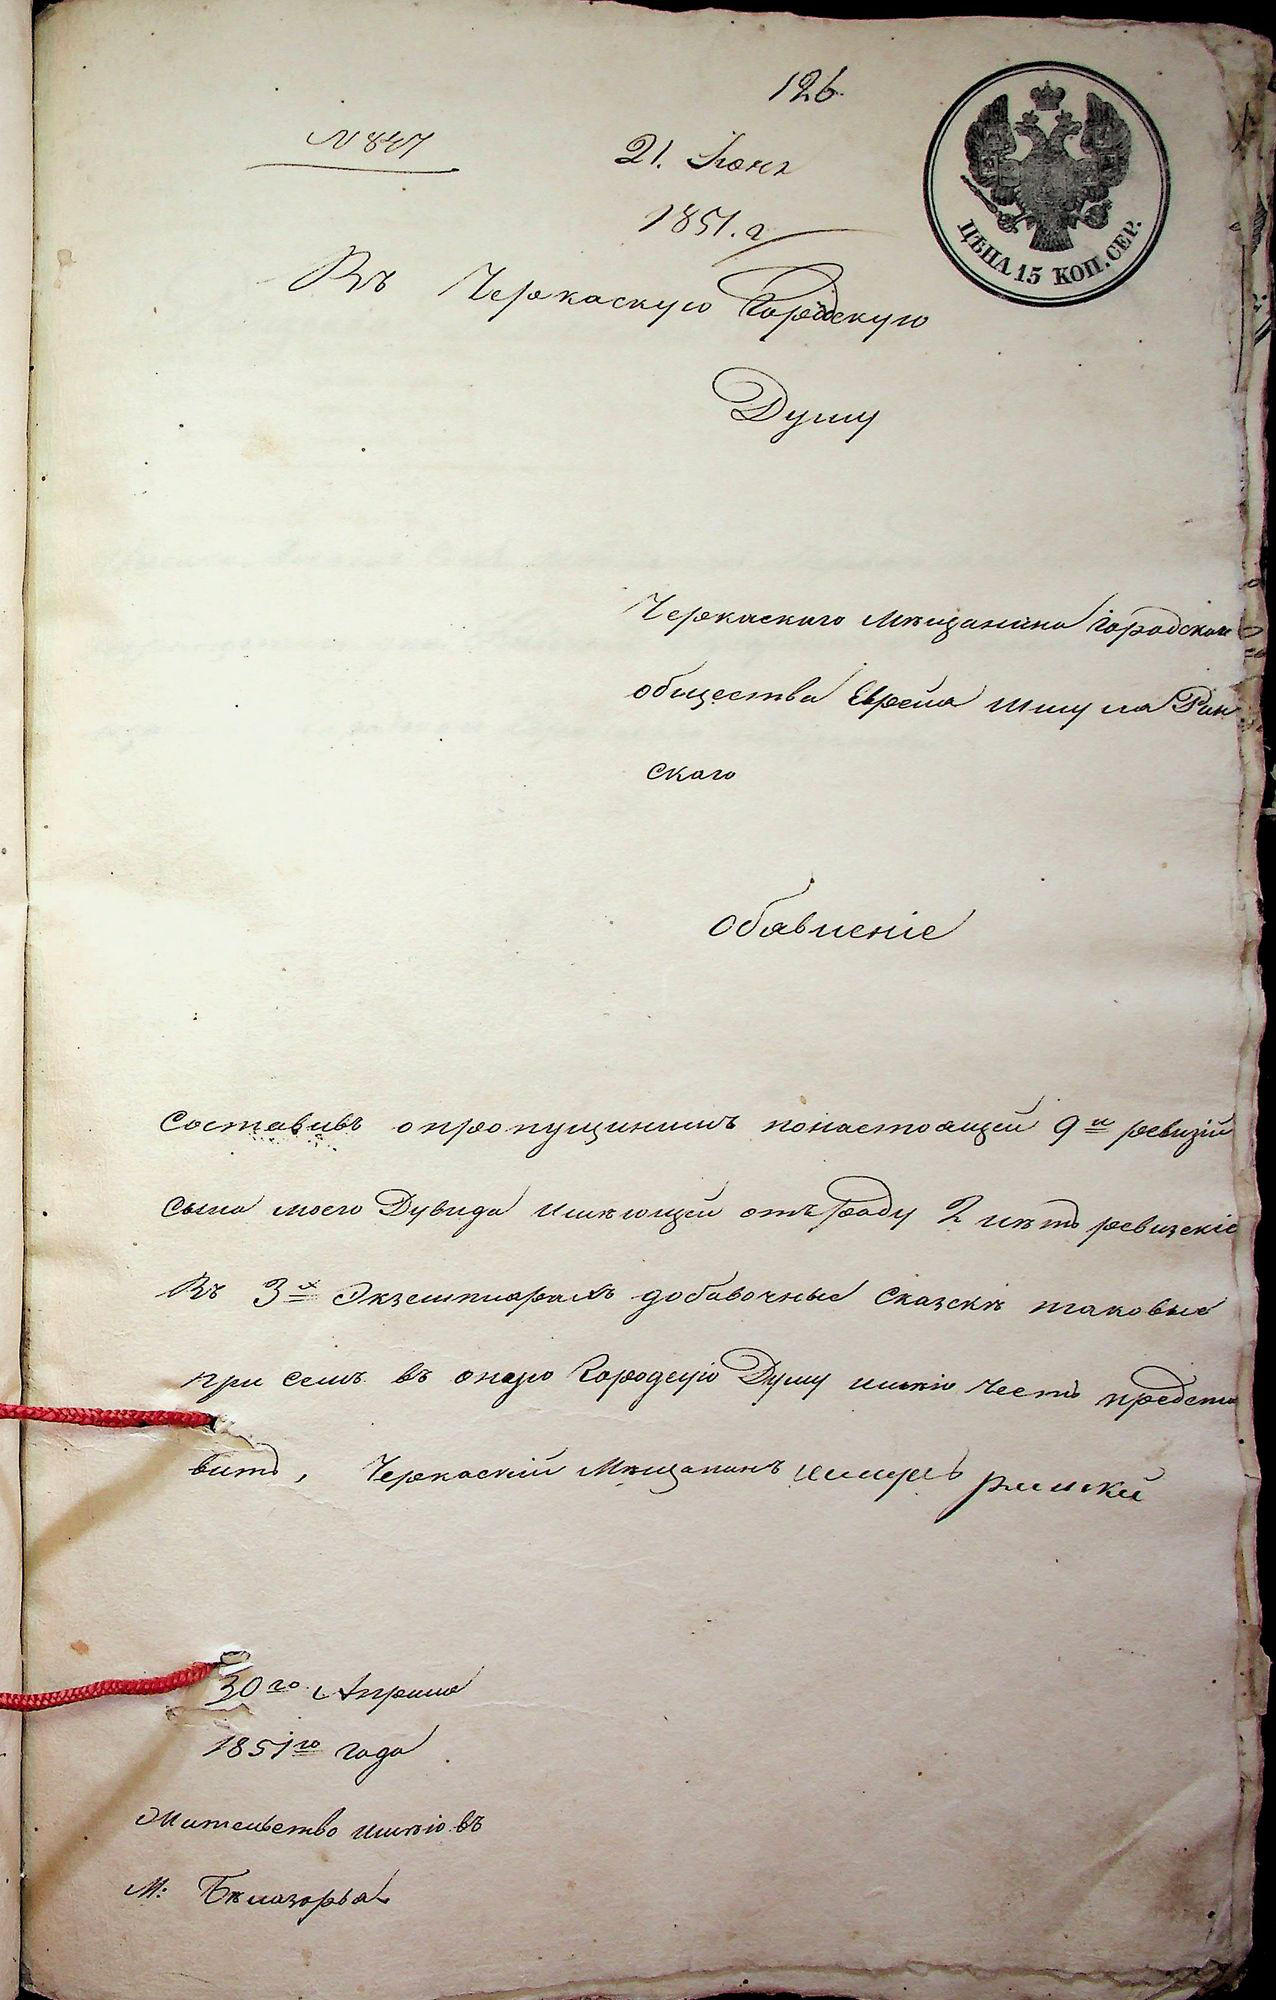 126
N 847
21. Июня
1851. г
ЦѢНА 15 КОП. СЕР.
Въ Черкаскую Городскую
Думу
Черкаскаго мѣщанина Городскаго
общества Еврея Шмуля Рин
скаго
Обявленіе
Составивъ о пропущинимъ понастоящей 9й ревизіи
сына моего Дувида имѣющей отъ роду 2 лѣтъ ревизскіе
Въ 3х Экземплярахъ добавочные сказскѣ таковые
при семъ въ оную Городскую Думу имѣю честь предста
вить, Черкаский Мѣщанинъ
30го Апреля
1851го года
Жительство имѣю въ
М: Бѣлазорьѣ